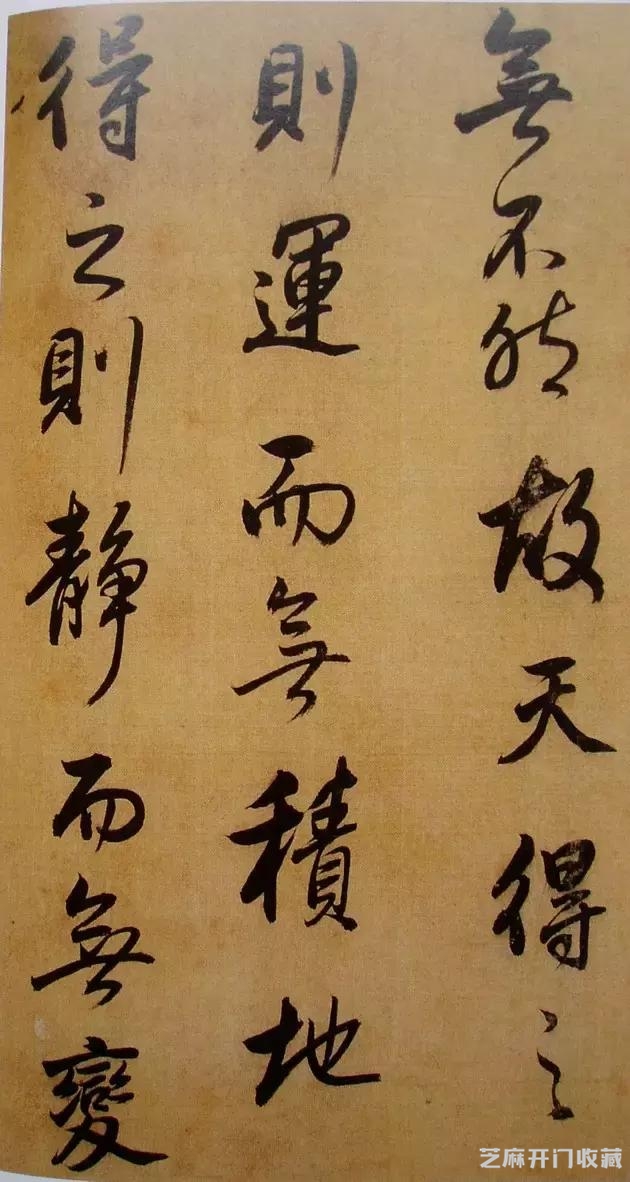 無不然故天得之
則運而無積地
得之則靜而無變
芝麻开门收藏